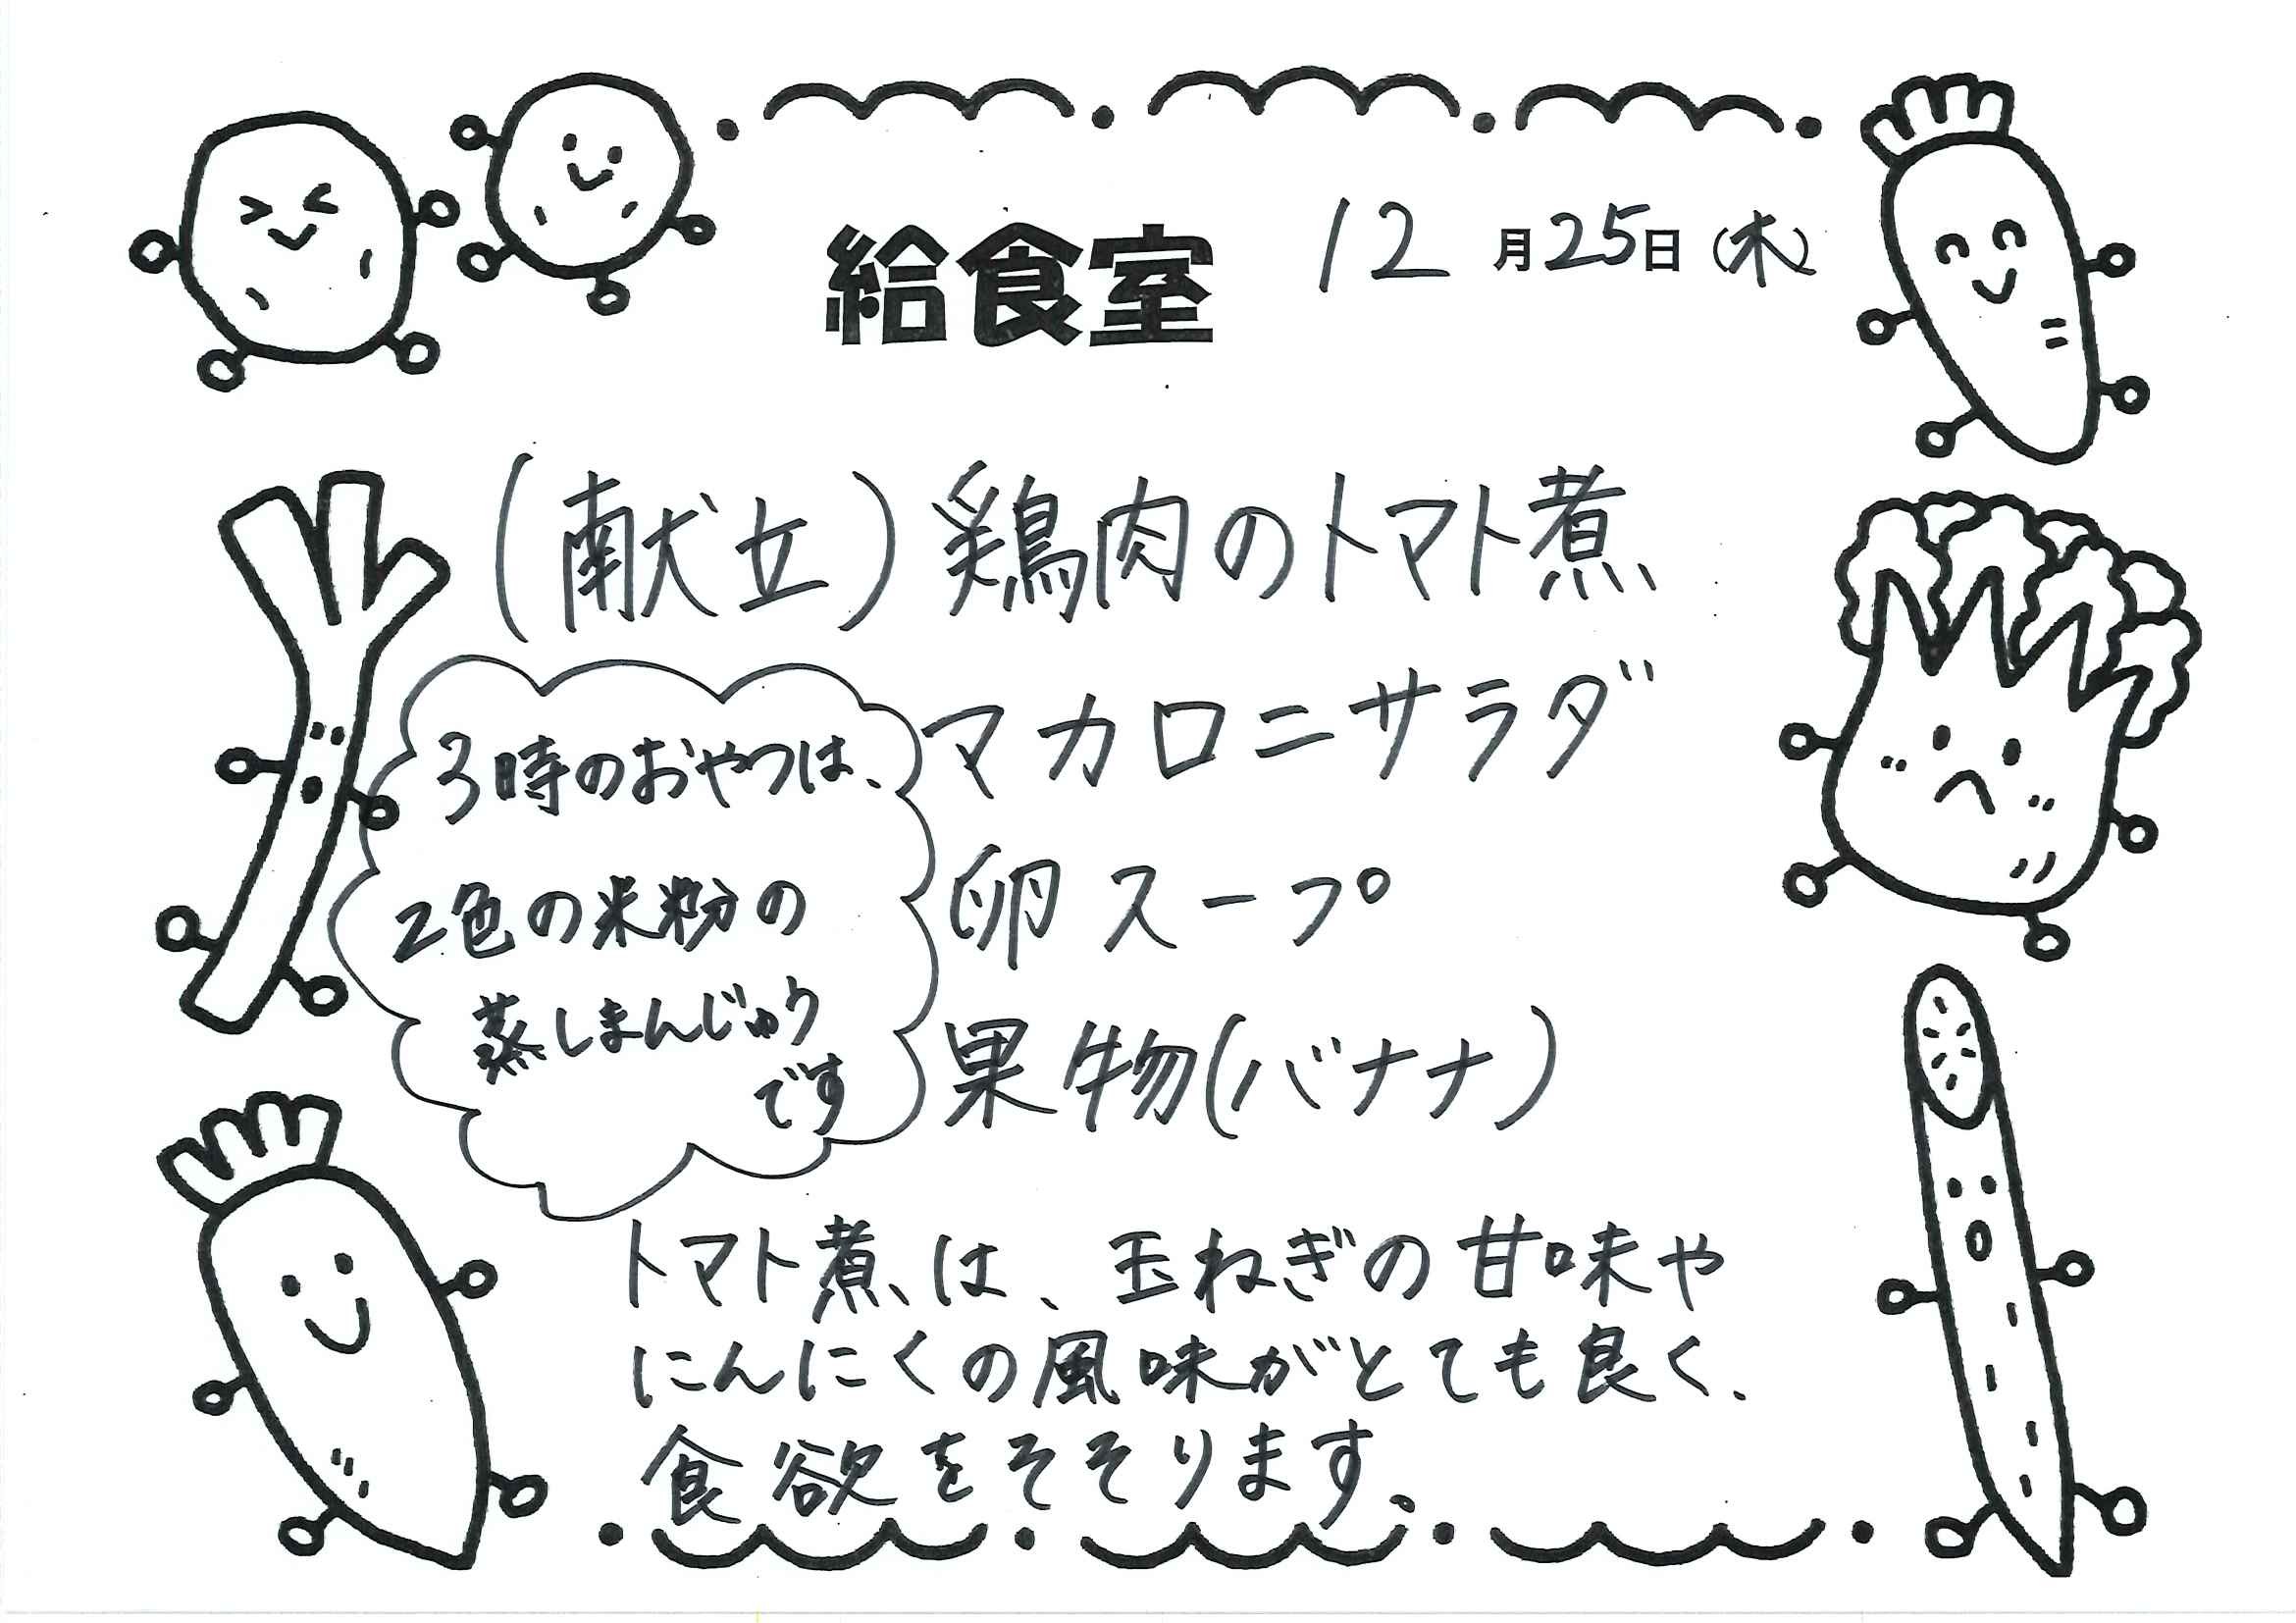 給食室 12月25日(木)
(献立)鶏肉のトマト煮
マカロニサラダ
卵スープ
果物(バナナ)
3時のおやつは、
2色の米粉の
蒸しまんじゅう
です
トマト煮は、玉ねぎの甘味や
にんにくの風味がとても良く、
食欲をそそります。